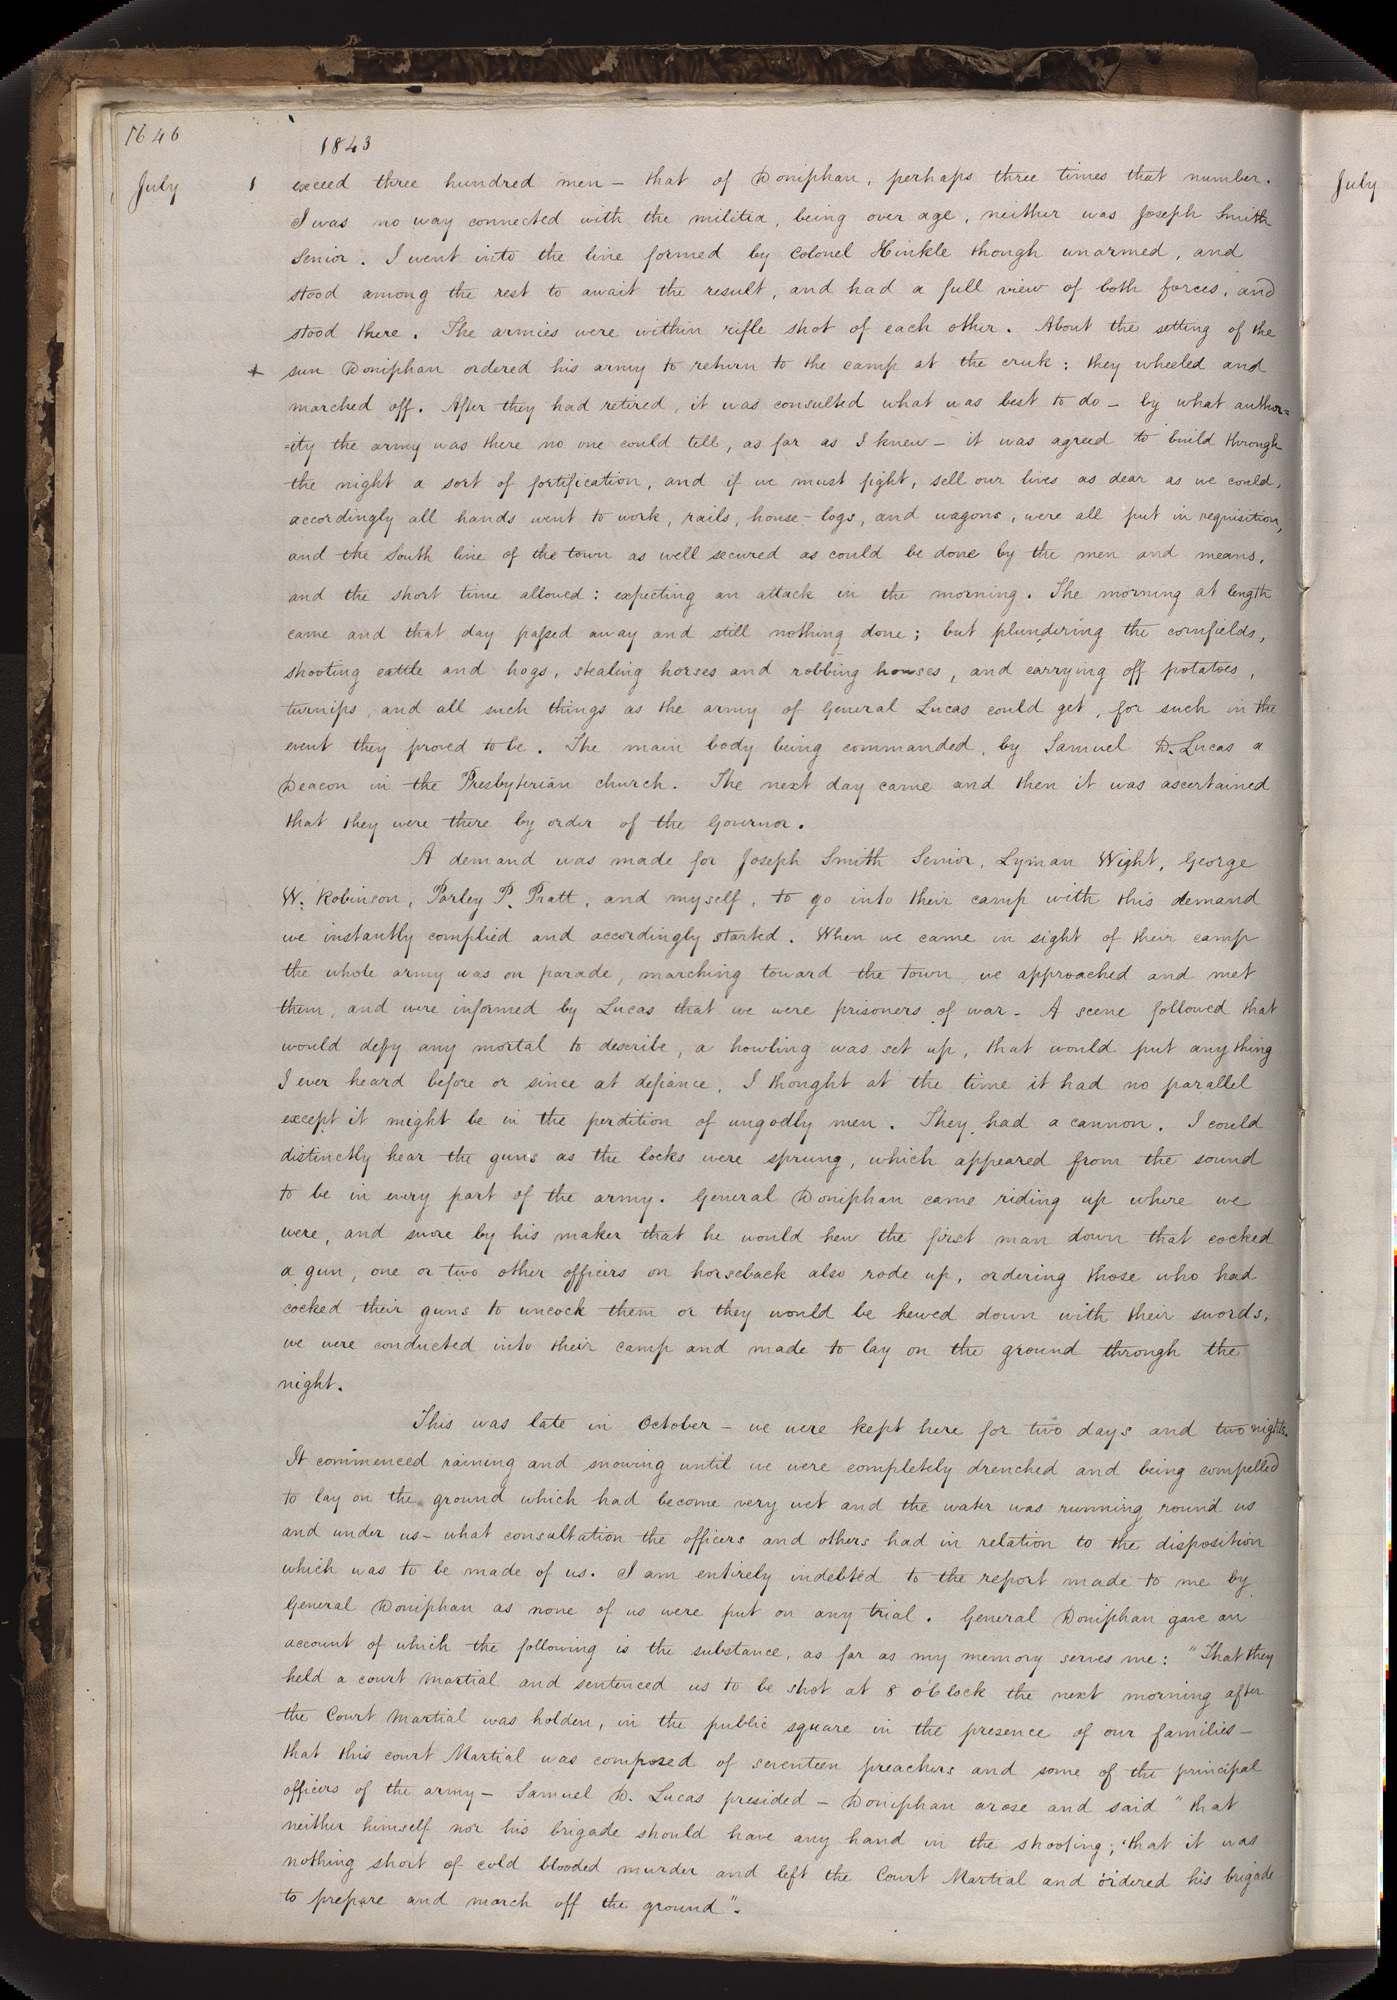 1646
1843
July 1 exceed three hundred men — that of Doniphan, perhaps three times that number.
I was no way connected with the militia, being over age, neither was Joseph Smith
Senior. I went into the line formed by Colonel Hinkle though unarmed, and
stood among the rest to await the result, and had a full view of both forces, and
stood there. The armies were within rifle shot of each other. About the setting of the
+ sun Doniphan ordered his army to return to the camp at the creek: they wheeled and
marched off. After they had retired, it was consulted what was best to do — by what author=
=ity the army was there no one could tell, as far as I knew — it was agreed to build through
the night a sort of fortification, and if we must fight, sell our lives as dear as we could,
accordingly all hands went to work, rails, house-logs, and wagons, were all put in requisition,
and the South line of the town as well secured as could be done by the men and means,
and the short time allowed: expecting an attack in the morning. The morning at length
came and that day passed away and still nothing done; but plundering the cornfields,
shooting cattle and hogs, stealing horses and robbing houses, and carrying off potatoes,
turnips, and all such things as the army of General Lucas could get, for such in the
event they proved to be. The main body being commanded, by Samuel D. Lucas a
Deacon in the Presbyterian church. The next day came and then it was ascertained
that they were there by order of the Governor.
A demand was made for Joseph Smith Senior, Lyman Wight, George
W. Robinson, Parley P. Pratt, and myself, to go into their camp with this demand
we instantly complied and accordingly started. When we came in sight of their camp
the whole army was on parade, marching toward the town, we approached and met
them, and were informed by Lucas that we were prisoners of war — A scene followed that
would defy any mortal to describe, a howling was set up, that would put any thing
I ever heard before or since at defiance. I thought at the time it had no parallel
except it might be in the perdition of ungodly men. They had a cannon. I could
distinctly hear the guns as the locks were sprung, which appeared from the sound
to be in every part of the army. General Doniphan came riding up where we
were, and swore by his maker that he would hew the first man down that cocked
a gun, one or two other officers on horseback also rode up, ordering those who had
cocked their guns to uncock them or they would be hewed down with their swords,
we were conducted into their camp and made to lay on the ground through the
night.
This was late in October — we were kept here for two days and two nights.
It commenced raining and snowing until we were completely drenched and being compelled
to lay on the ground which had become very wet and the water was running round us
and under us — what consultation the officers and others had in relation to the disposition
which was to be made of us. I am entirely indebted to the report made to me by
General Doniphan as none of us were put on any trial. General Doniphan gave an
account of which the following is the substance, as far as my memory serves me: "That they
held a court Martial and sentenced us to be shot at 8 o'clock the next morning after
the Court Martial was holden, in the public square in the presence of our families —
that this court Martial was composed of seventeen preachers and some of the principal
officers of the army — Samuel D. Lucas presided — Doniphan arose and said "that
neither himself nor his brigade should have any hand in the shooting; that it was
nothing short of cold blooded murder and left the Court Martial and ordered his brigade
to prepare and march off the ground".
July